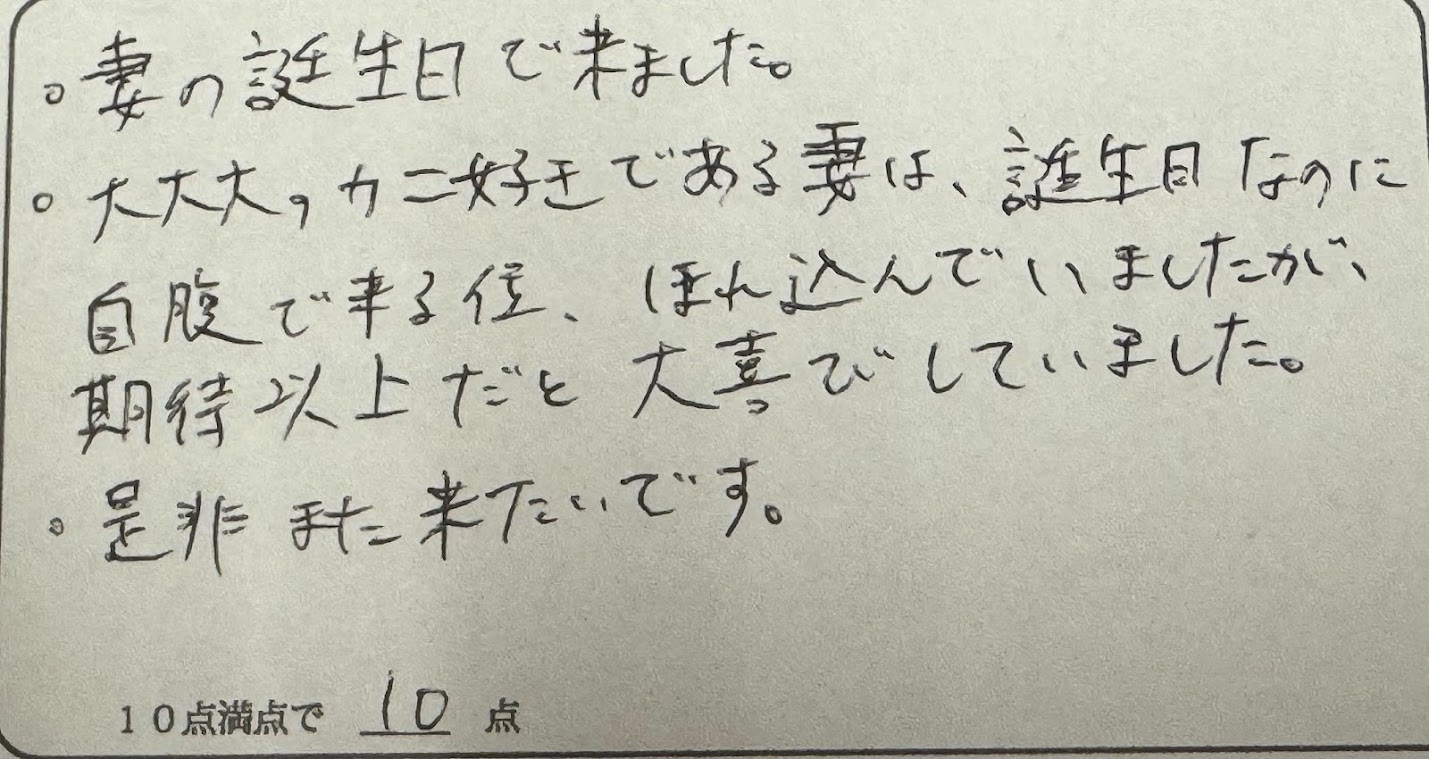 。妻の誕生日で来ました。
。大大大のカニ好きである妻は、誕生日なのに
自腹で来る位、ほれ込んでいましたが、
期待以上だと大喜びしていました。
。是非また来たいです。
10点満点で 10 点